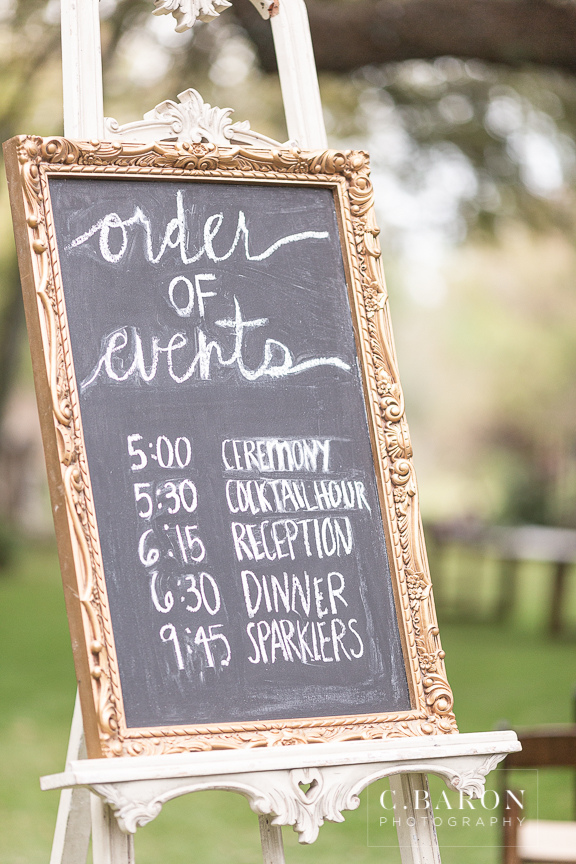 order
OF
events
5:00 CEREMONY
5:30 COCKTAIL HOUR
6:15 RECEPTION
6:30 DINNER
9:45 SPARKLERS
C.BARON
PHOTOGRAPHY